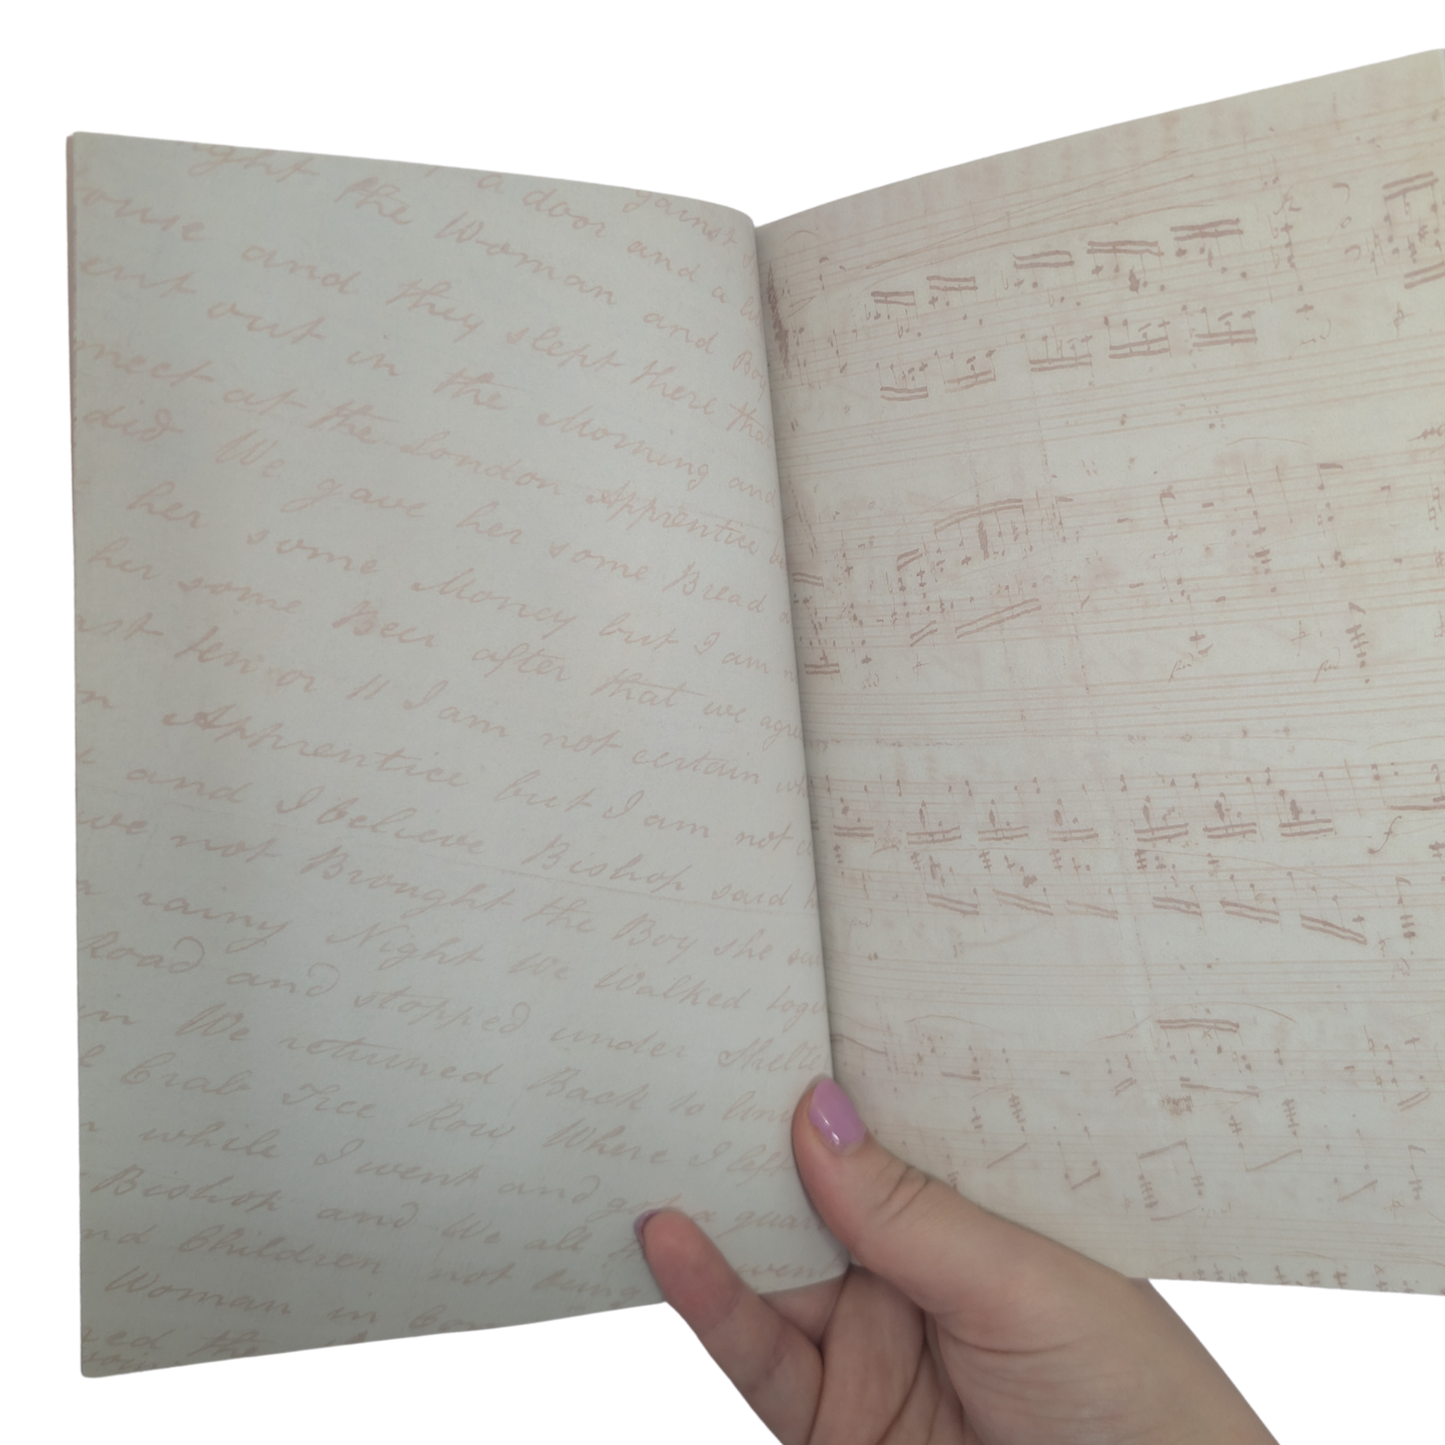 ght a door and against
ouse the Woman and a
ent and they slept there and Boy
out in the Morning and that
meet at the London Apprentice
did We gave her some Bread
her some Money but I am
her some Beer after that we agre
ten or 11 I am not certain wh
n Apprentice but I am not
and I believe Bishop said h
we not Brought the Boy she
a rainy Night We Walked toge
Road and stopped under Shelte
in We returned Back to
Crab Tree Row Where I left
while I went and got a quar
Bishop and We all
nd Children not being
Woman in
red the